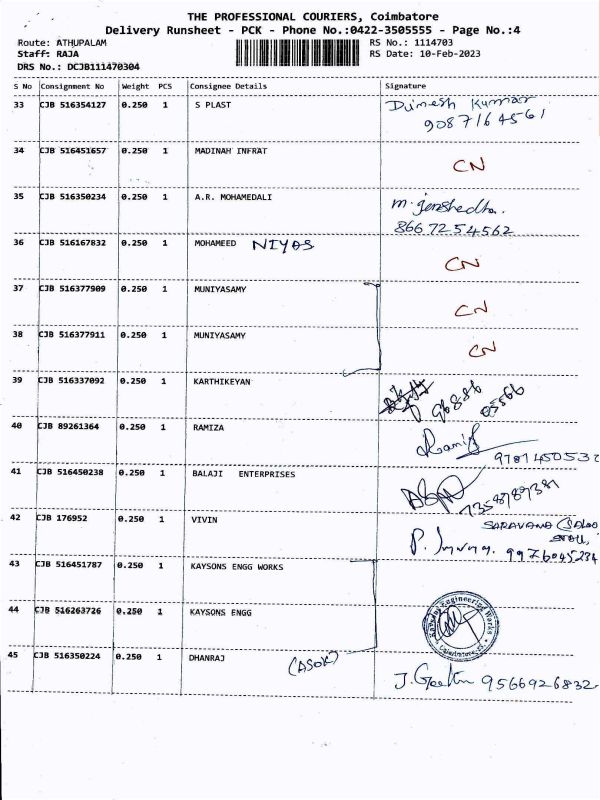 THE PROFESSIONAL COURIERS, Coimbatore
Delivery Runsheet - PCK - Phone No.:0422-3505555 - Page No.:4
Route: ATHUPALAM RS No.: 1114703
Staff: RAJA RS Date: 10-Feb-2023
DRS No.: DCJB111470304
S No Consignment No Weight PCS Consignee Details Signature
33 CJB 516354127 0.250 1 S PLAST Dinesh Kumar
9087164561
34 CJB 516451657 0.250 1 MADINAH INFRAT CN
35 CJB 516350234 0.250 1 A.R. MOHAMEDALI
8667254562
36 CJB 516167832 0.250 1 MOHAMEED NIYAS CN
37 CJB 516377909 0.250 1 MUNIYASAMY CN
38 CJB 516377911 0.250 1 MUNIYASAMY CN
39 CJB 516337092 0.250 1 KARTHIKEYAN 96886
05566
40 CJB 89261364 0.250 1 RAMIZA
41 CJB 516450238 0.250 1 BALAJI ENTERPRISES
42 CJB 176952 0.250 1 VIVIN SARAVANA
9976045234
43 CJB 516451787 0.250 1 KAYSONS ENGG WORKS
44 CJB 516263726 0.250 1 KAYSONS ENGG
45 CJB 516350224 0.250 1 DHANRAJ (ASOK)
J. Geetha 9566926832